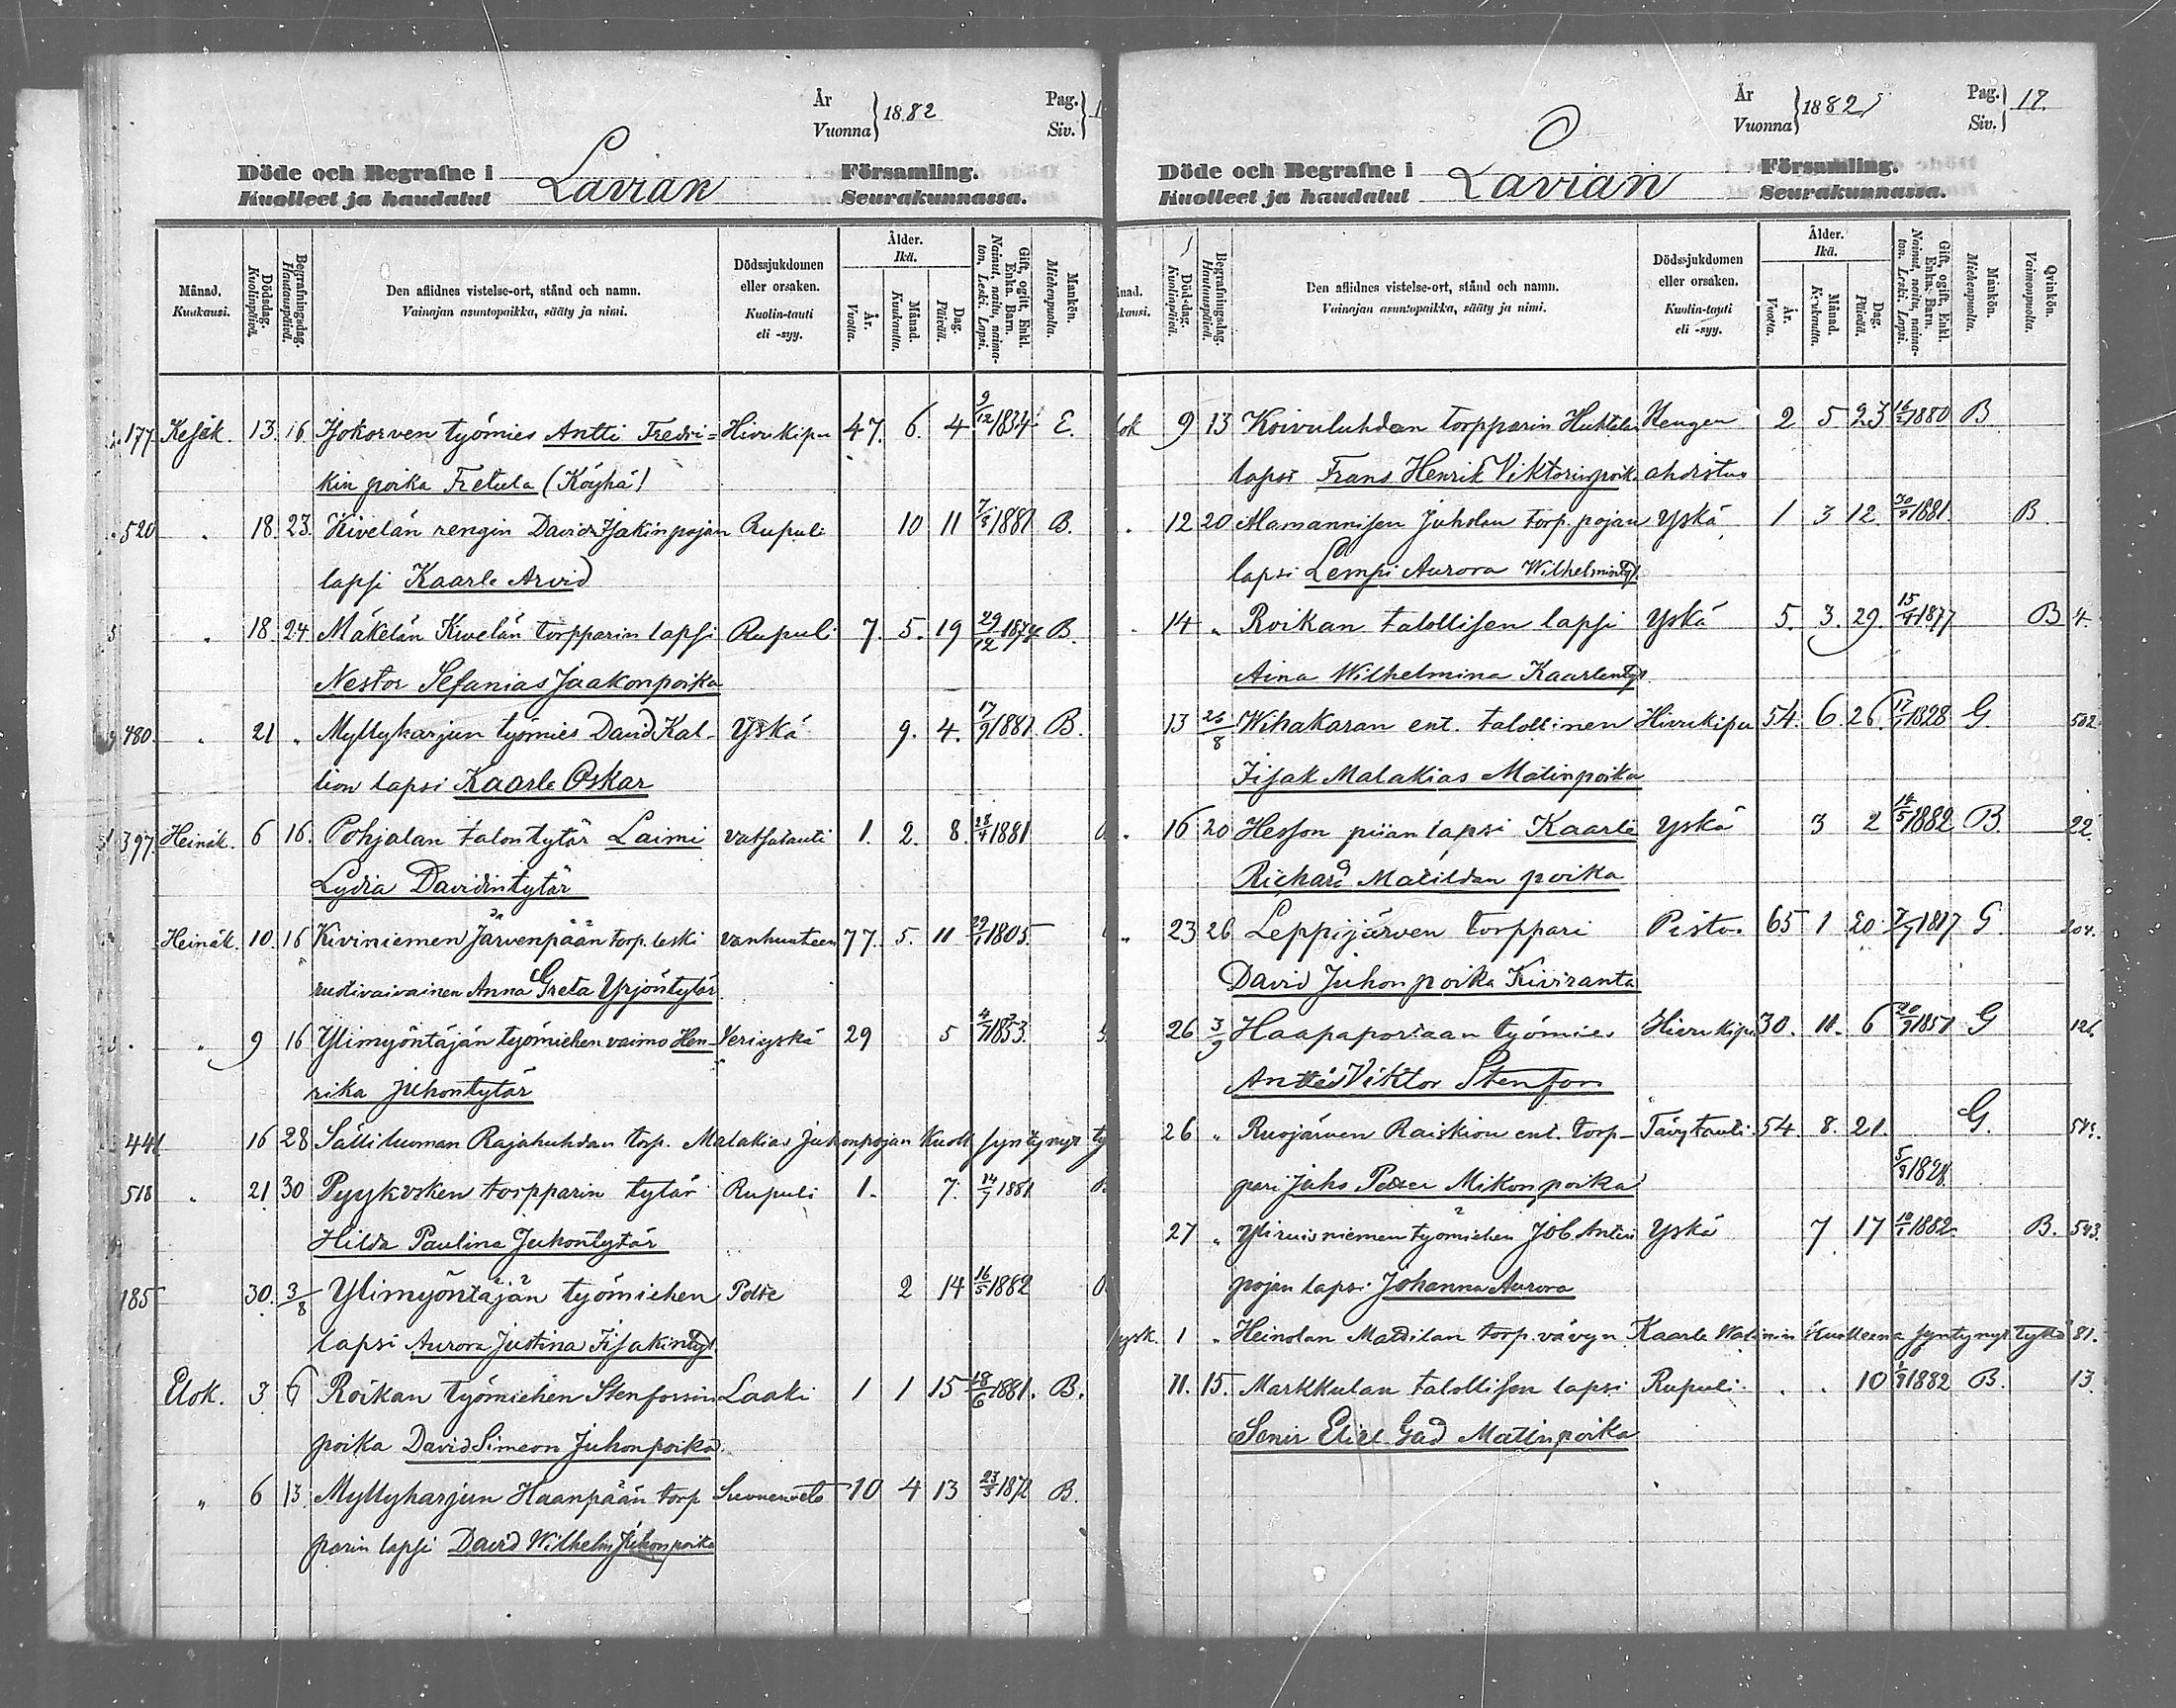 År
Vuonna} 1882
Pag.
Siv.} 1
Döde och Begrafne i
Kuolleet ja haudatut Lavian Församling.
Seurakunnassa.
Månad.
Kuukausi.
Dödsdag.
Kuolinpäivä.
Begrafningsdag.
Hautauspäivä.
Den aflidnes vistelse-ort, stånd och namn.
Vainajan asuntopaikka, sääty ja nimi.
Dödssjukdomen
eller orsaken.
Kuolin-tauti
eli -syy.
Ålder.
Ikä.
År.
Vuotta.
Månad.
Kuukautta.
Dag.
Päivää.
Gift, ogift, Enkl.
Enka. Barn.
Nainut, naitu, naima-
ton, Leski. Lapsi.
Mankön.
Miehenpuolta.
177 Kesäk. 13. 16 Isokorven työmies Antti Fredri= Hivukipu 47. 6. 4 9/12 1834 E.
kin poika Fretula (Köyhä)
520 . 18. 23. Kivelän rengin David Isakinpojan Rupuli 10 11 7/8 1881 B.
lapsi Kaarle Arvid
. 18. 24 Mäkelän Kivelän torpparin lapsi Rupuli 7. 5. 19 29/12 1874 B.
Nestor Sefanias Jaakonpoika
480 . 21 " Myllyharjun työmies David Kal- Yskä 9. 4. 17/9 1881 B.
lion lapsi Kaarle Oskar
397 Heinäk. 6 16. Pohjalan talon tytär Laimi vatsatauti 1. 2. 8. 28/4 1881
Lydia Davidintytär
Heinäk. 10. 16 Kiviniemen Järvenpään torp. leski vanhuuteen 77. 5. 11 29/1 1805
ruotivaivainen Anna Greta Yrjöntytär
" 9 16 Ylimyöntäjän työmiehen vaimo Hen- Veriyskä 29 5 4/7 1853.
rika Juhontytär
441 16 28 Sälliluoman Rajahuhdan torp. Malakias Juhonpojan Kuoll. syntynyt ty
518 . 21 30 Pyykosken torpparin tytär Rupuli 1. 7. 14/7 1881
Hilda Paulina Juhontytär
185 30. 3/8 Ylimyöntäjän työmiehen 2 14 16/5 1882
lapsi Aurora Justina Iisakintyt.
Elok. 3 6 Roikan työmiehen Stenforsin Laaki 1 1 15 18/6 1881. B.
poika David Simeon Juhonpoika
" 6 13. Myllyharjun Haanpään torp Suonenveto 10 4 13 23/3 1872 B.
parin lapsi David Wilhelm Juhonpoika
År
Vuonna} 1882
Pag.
Siv.} 17.
Döde och Begrafne i
Kuolleet ja haudatut Lavian Församling.
Seurakunnassa.
nad.
kausi.
Död-dag.
Kuolinpäivä.
Begrafningsdag.
Hautauspäivä.
Den aflidnes vistelse-ort, stånd och namn.
Vainajan asuntopaikka, sääty ja nimi.
Dödssjukdomen
eller orsaken.
Kuolin-tauti
eli -syy.
Ålder.
Ikä.
År.
Vuotta.
Månad.
Kuukautta.
Dag.
Päivää.
Gift, ogift, Enkl.
Enka. Barn.
Nainut, naitu, naima-
ton, Leski. Lapsi.
Mankön.
Miehenpuolta.
Qvinkön.
Vaimonpuolta.
lok 9 13 Koivuluhdan torpparin Huhtala Hengen 2 5 23 16/2 1880 B
lapsi Frans Henrik Viktorinpoik. ahdistus
. 12 20 Alamannisen Juholan torp. pojan Yskä 1 3 12. 30/4 1881. B
lapsi Lempi Aurora Wilhelmintyt.
. 14 " Roikan talollisen lapsi Yskä 5. 3. 29. 15/4 1877 B 4.
Aina Wilhelmina Kaarlentyt.
13 26/8 Wihakaran ent. talollinen Hivukipu 54. 6. 26 17/1 1828 G. 502
Iisak Malakias Matinpoika
. 16 20 Hesson piian lapsi Kaarle Yskä 3 2 14/5 1882 B. 22.
Richard Matildan poika
" 23 26 Leppijärven torppari Pistos 65 1 20 3/7 1817 G. 204.
David Juhonpoika Kiviranta
26 3/9 Haapaporraan työmies Hivukipu 30. 11. 6 20/9 1851 G 126
Antti Viktor Stenfors
26 " Ruojärven Raiskion ent. torp- Täsytauti 54. 8. 21. G.
pari Juho Mikonpoika 5/9 1828.
27 " Yliruisniemen työmiehen Job. Antin Yskä 7 17 10/1 1882. B. 543.
pojan lapsi Johanna Aurora
ysk. 1 " Heinolan Mattilan torp. vävyn Kaarle Walinin Kuolleena syntynyt tyttö 81.
11. 15. Markkulan talollisen lapsi Rupuli . . 10 1/9 1882 B. 13.
Eliel Gad Matinpoika